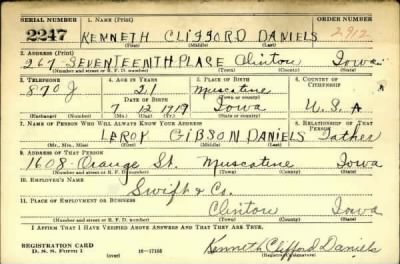 SERIAL NUMBER 1. NAME (Print) ORDER NUMBER
2247 KENNETH CLIFFORD DANIELS 2912
(First) (Middle) (Last)
2. ADDRESS (Print)
267 SEVENTEENTH PLACE Clinton Iowa
(Number and street or R. F. D. number) (Town) (County) (State)
3. TELEPHONE 4. AGE IN YEARS 5. PLACE OF BIRTH 6. COUNTRY OF CITIZENSHIP
870 J 21 Muscatine
DATE OF BIRTH (Town or county)
7 12 1919 Iowa U.S.A
(Exchange) (Number) (Mo.) (Day) (Yr.) (State or country)
7. NAME OF PERSON WHO WILL ALWAYS KNOW YOUR ADDRESS 8. RELATIONSHIP OF THAT PERSON
LEROY GIBSON DANIELS Father
(Mr., Mrs., Miss) (First) (Middle) (Last)
9. ADDRESS OF THAT PERSON
1608 Orange St. Muscatine Iowa
(Number and street or R. F. D. number) (Town) (County) (State)
10. EMPLOYER'S NAME
Swift & Co.
11. PLACE OF EMPLOYMENT OR BUSINESS
Clinton Iowa
(Number and street or R. F. D. number) (Town) (County) (State)
I AFFIRM THAT I HAVE VERIFIED ABOVE ANSWERS AND THAT THEY ARE TRUE.
REGISTRATION CARD
D. S. S. Form 1 (over) 16—17105 Kenneth Clifford Daniels
(Registrant's signature)